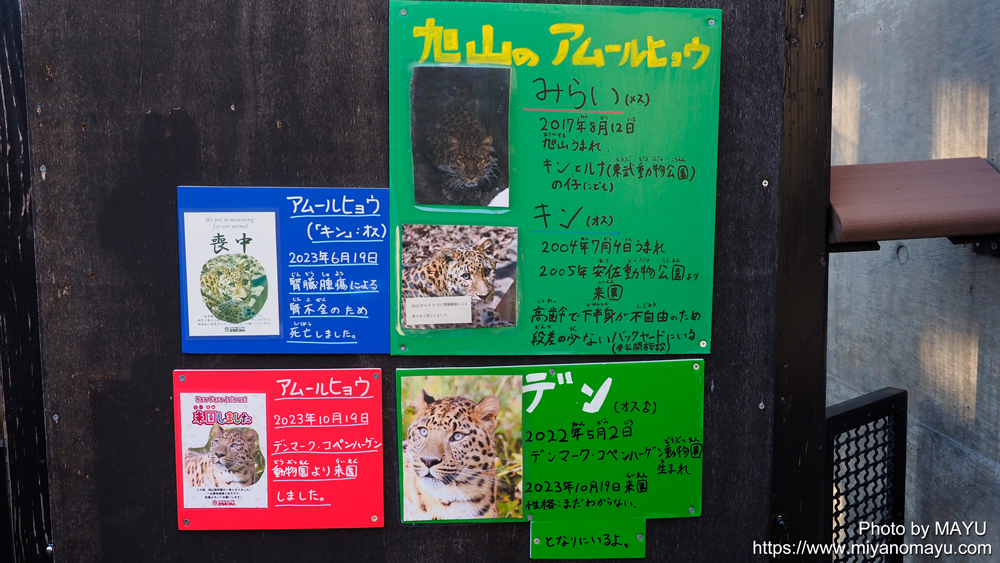 旭山の アムールヒョウ
みらい(メス)
2017年8月12日
旭山うまれ.
キンとルナ(東武動物公園)
の仔(こども)
キン(オス)
2004年7月4日うまれ
2005年 安佐動物公園より
来園
高齢で下半身が不自由のため
段差の少ないバックヤードにいる
(非公開施設)
アムールヒョウ
(「キン」:オス)
2023年6月19日
腎臓腫瘍による
腎不全のため
死亡しました。
We are in mourning
for our animal
喪中
アムールヒョウ
2023年10月19日
デンマーク・コペンハーゲン
動物園より来園
しました。
来園しました
デン(オス♂)
2022年5月2日
デンマーク・コペンハーゲン動物園
生まれ
2023年10月19日来園
性格:まだわからない.
となりにいるよ。
Photo by MAYU
https://www.miyanomayu.com